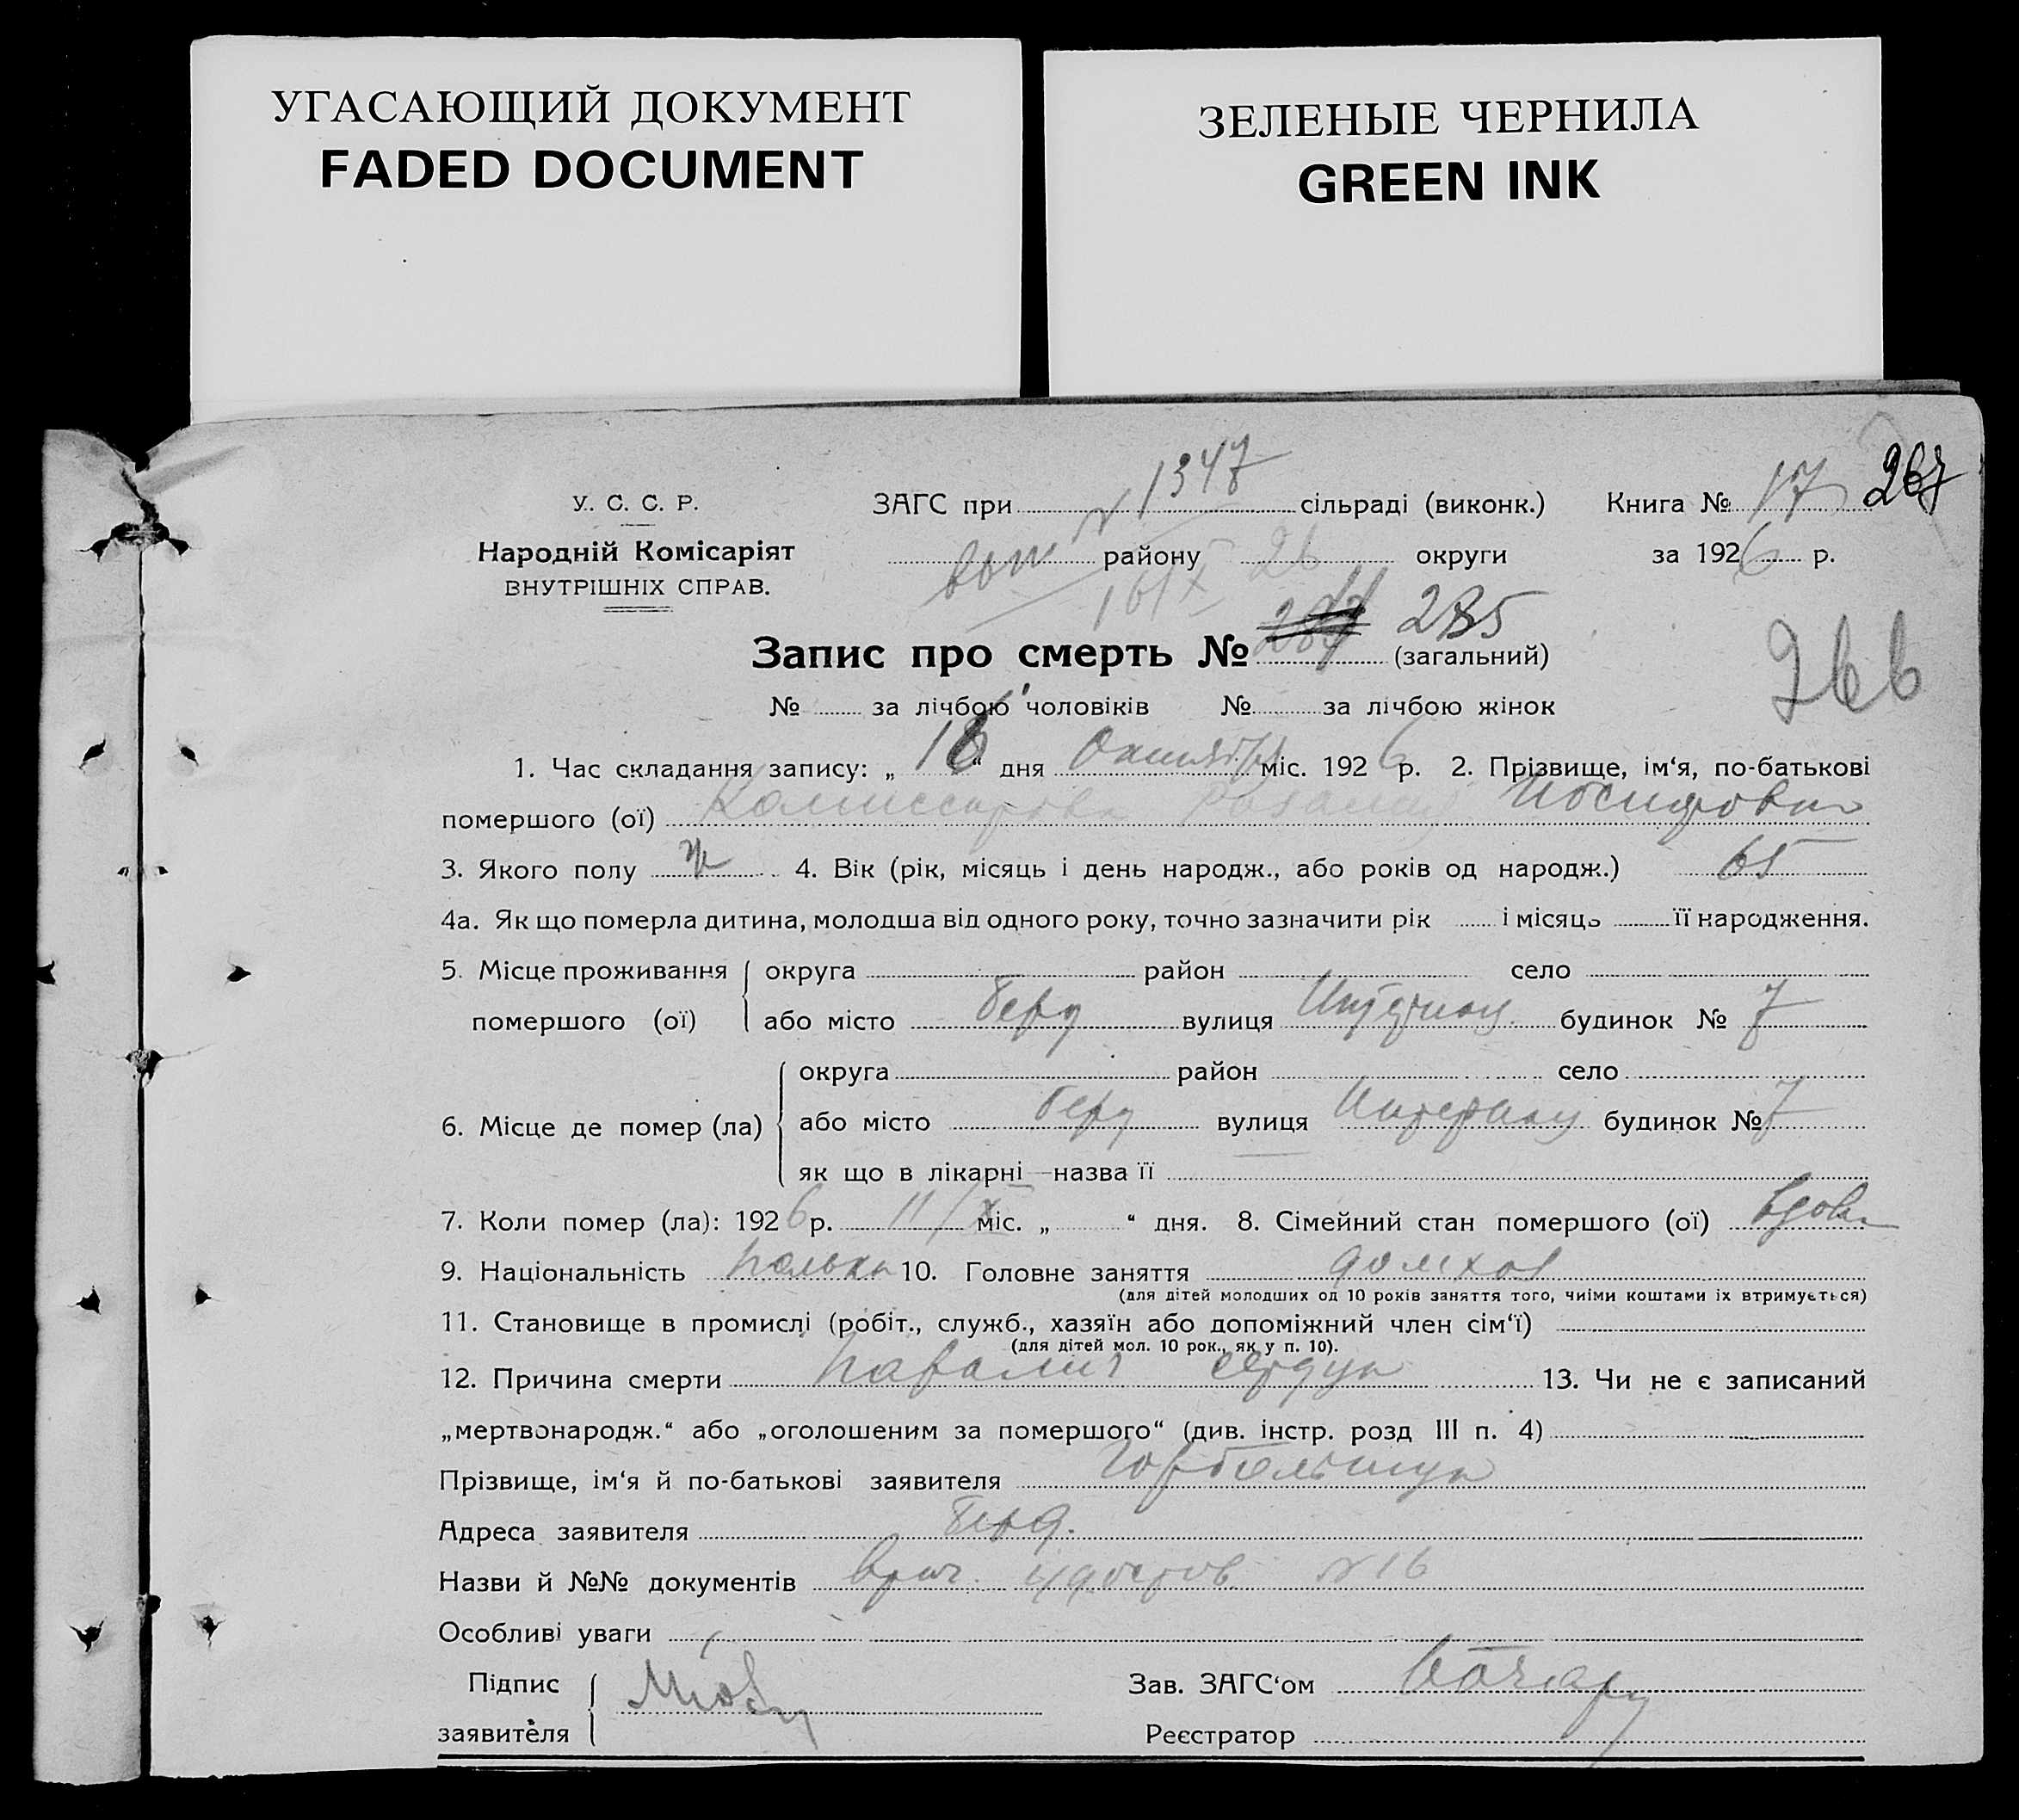 УГАСАЮЩИЙ ДОКУМЕНТ
FADED DOCUMENT
ЗЕЛЕНЫЕ ЧЕРНИЛА
GREEN INK
У. С. С. Р.
Народній Комісаріят
ВНУТРІШНІХ СПРАВ.
ЗАГС при № 1347 сільраді (виконк.) Книга № 17 267
району 26 округи за 1926 р.
16/X
Запис про смерть № 285 (загальний)
266
№ за лічбою чоловіків № за лічбою жінок
1. Час складання запису: „ 16 “ дня Октября міс. 1926 р. 2. Прізвище, ім‘я, по-батькові
помершого (ої) Комиссарова Розалия Иосифовна
3. Якого полу ж 4. Вік (рік, місяць і день народж., або років од народж.) 65
4а. Як що померла дитина, молодша від одного року, точно зазначити рік і місяць її народження.
5. Місце проживання округа район село
помершого (ої) або місто Берд вулиця будинок № 7
округа район село
6. Місце де помер (ла) або місто Берд вулиця будинок № 7
як що в лікарні—назва її
7. Коли помер (ла): 1926 р. 11/X міс. „ “ дня. 8. Сімейний стан помершого (ої) вдова
9. Національність полька 10. Головне заняття домхоз
(для дітей молодших од 10 років заняття того, чиїми коштами їх втримується)
11. Становище в промислі (робіт., служб., хазяїн або допоміжний член сім‘ї)
(для дітей мол. 10 рок., як у п. 10).
12. Причина смерти паралич сердца 13. Чи не є записаний
„мертвонародж.“ або „оголошеним за помершого“ (див. інстр. розд III п. 4)
Прізвище, ім‘я й по-батькові заявителя
Адреса заявителя Берд.
Назви й №№ документів врач. удостов. № 16
Особливі уваги
Підпис
заявителя
Зав. ЗАГС‘ом
Реєстратор